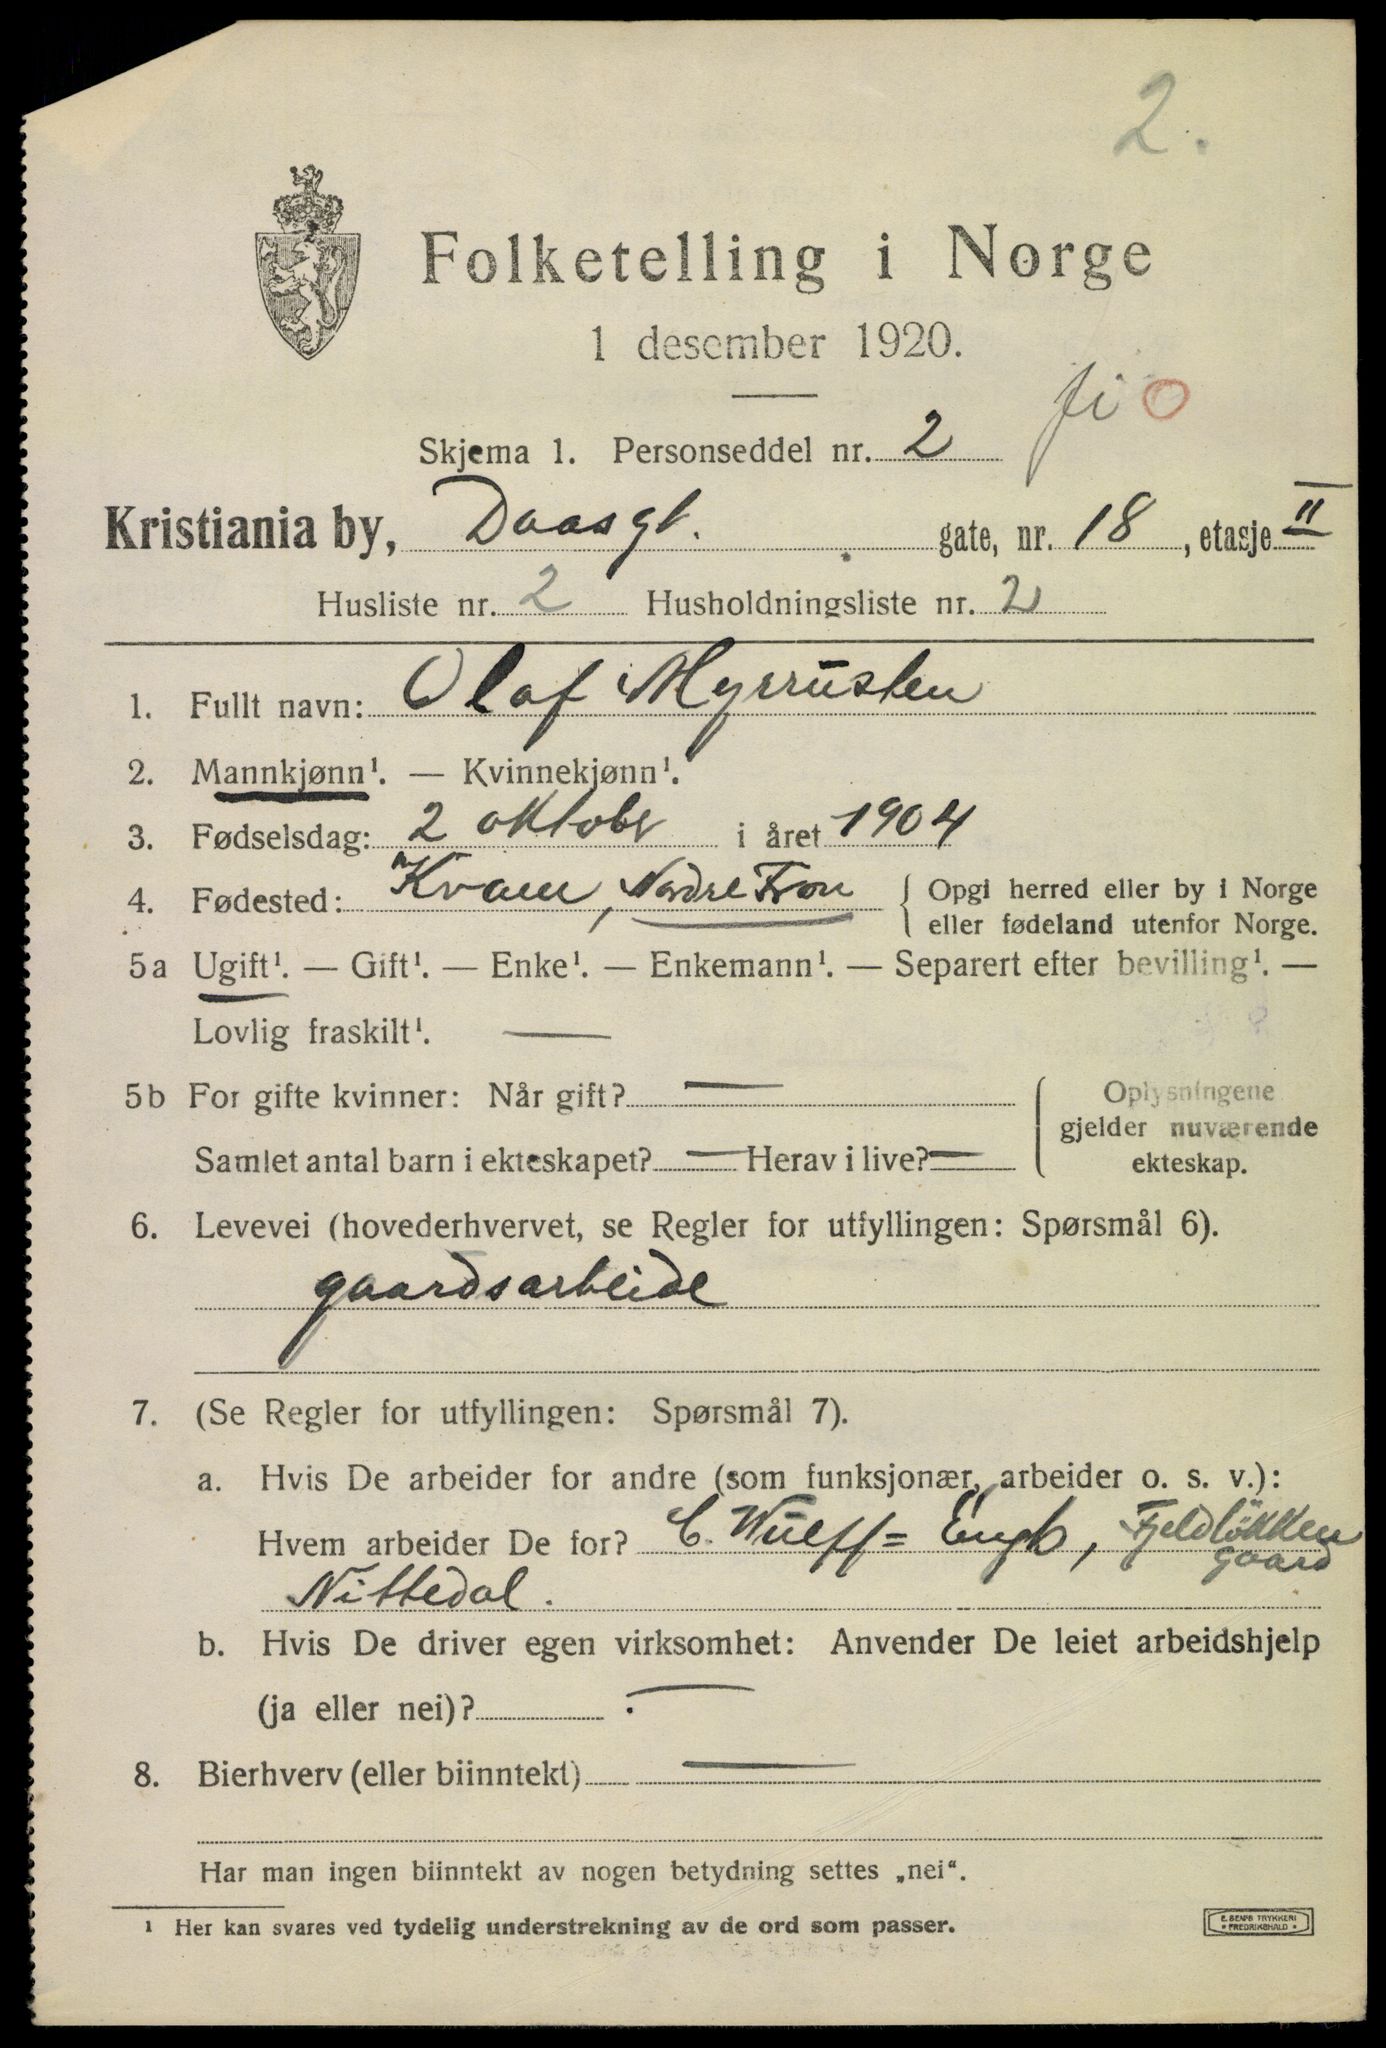 2.
Folketelling i Norge
1 desember 1920.
Skjema 1. Personseddel nr. 2
Kristiania by, Daasgt. gate, nr. 18, etasje II
Husliste nr. 2 Husholdningsliste nr. 2
1. Fullt navn: Olaf Myrrusten
2. Mannkjønn¹. — Kvinnekjønn¹.
3. Fødselsdag: 2 oktobr i året 1904
4. Fødested: Kvam, Nordre Fron { Opgi herred eller by i Norge
eller fødeland utenfor Norge.
5a Ugift¹. — Gift¹. — Enke¹. — Enkemann¹. — Separert efter bevilling¹. —
Lovlig fraskilt¹. —
5b For gifte kvinner: Når gift? — { Oplysningene
gjelder nuværende
Samlet antal barn i ekteskapet? — Herav i live? — ekteskap.
6. Levevei (hovederhvervet, se Regler for utfyllingen: Spørsmål 6).
gaardsarbeide
7. (Se Regler for utfyllingen: Spørsmål 7).
a. Hvis De arbeider for andre (som funksjonær, arbeider o. s. v.):
Hvem arbeider De for? C. Wulff= Engh, Fjeldløkken
gaard
Nittedal.
b. Hvis De driver egen virksomhet: Anvender De leiet arbeidshjelp
(ja eller nei)? —
8. Bierhverv (eller biinntekt) —
Har man ingen biinntekt av nogen betydning settes „nei“.
¹ Her kan svares ved tydelig understrekning av de ord som passer.
E. SEMS TRYKKERI
* FREDRIKSHALD *